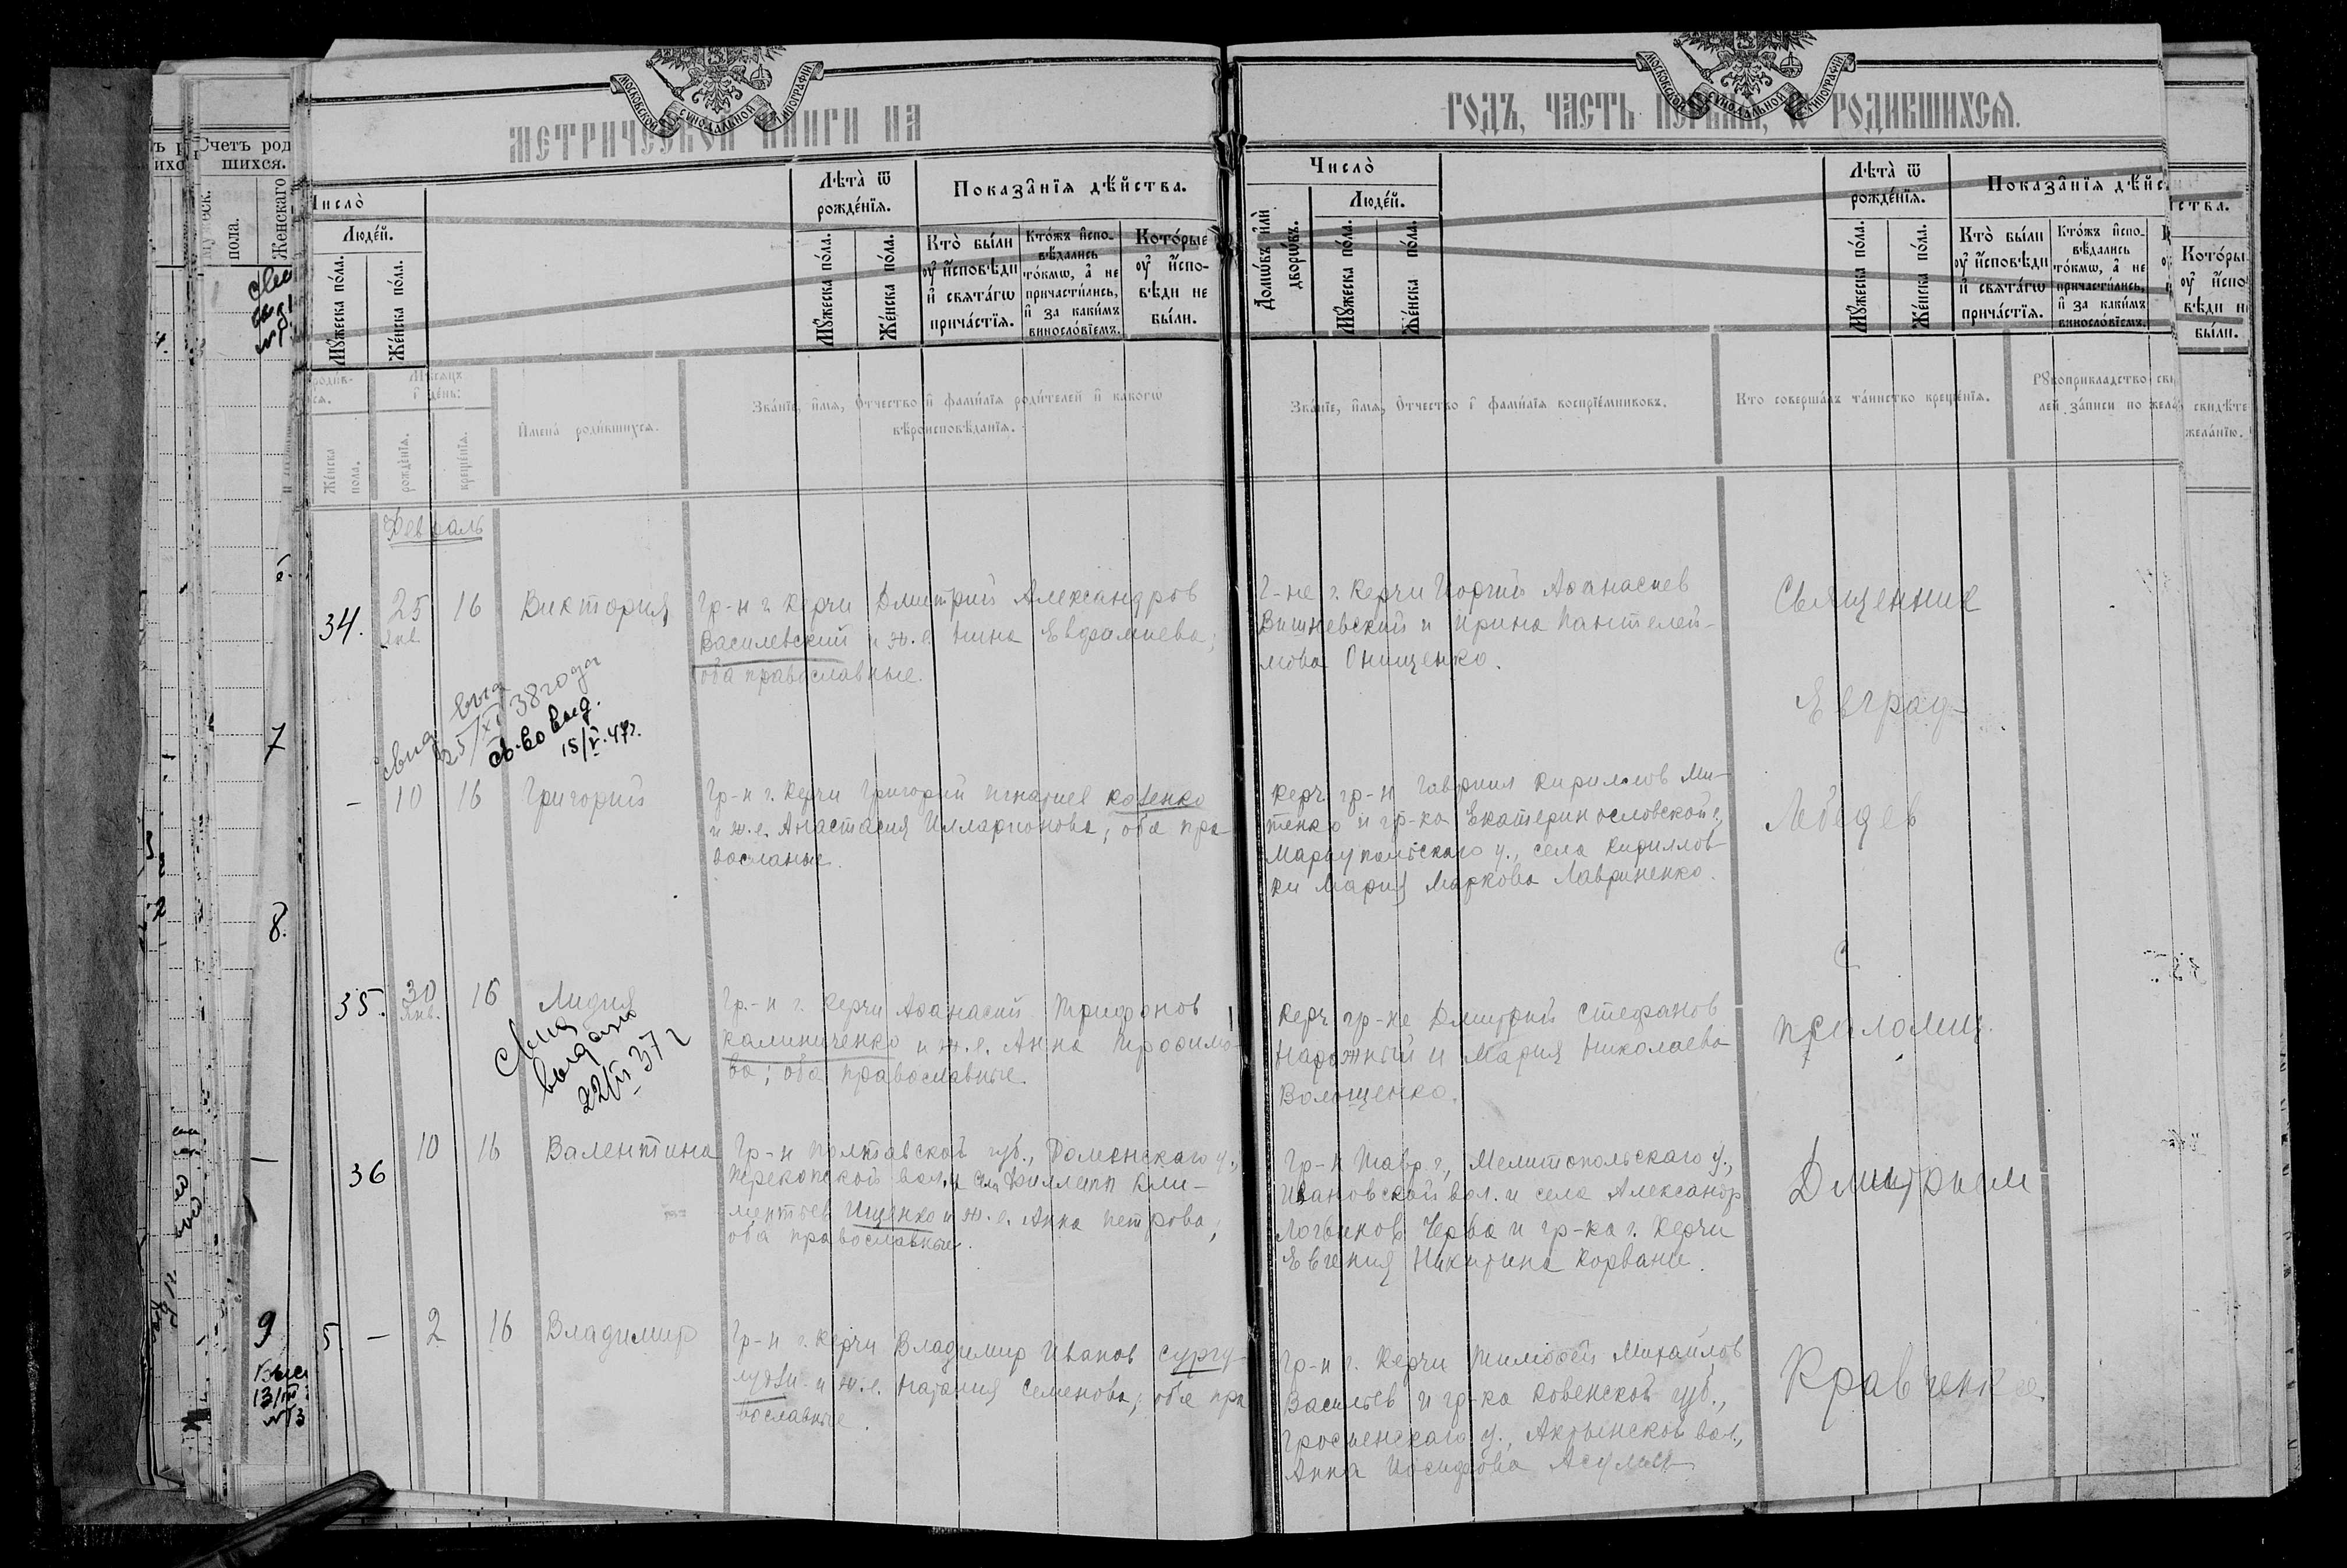 МОСКОВСКОЙ СѴНОДАЛЬНОЙ ТИПОГРАФІИ
МОСКОВСКОЙ СѴНОДАЛЬНОЙ ТИПОГРАФІИ
МЕТРИЧЕСКОЙ КНИГИ НА
ГОДЪ, ЧАСТЬ ПЕРВАЯ, Ѡ РОДИВШИХСЯ.
Счетъ род
шихся.
пола.
Женскаго
Число̀
Люде́й.
Мꙋ́жеска по́ла.
Же́нска по́ла.
Лѣ́та ѿ
рожде́нїѧ.
Мꙋ́жеска по́ла.
Же́нска по́ла.
Показа̂нїѧ дѣ́йства.
Кто̀ бы́ли
оу҆ и҆́сповѣди
и҆ свѧта́гѡ
прича́стїѧ.
Кто́жъ и҆спо-
вѣ́дались
то́кмѡ, а҆ не
причасти́лись,
и҆ за каки́мъ
винословїемъ.
Кото́рые
оу҆ и҆́спо-
вѣди не
бы́ли.
Число̀
Домѡ́въ и҆лѝ
дворѡ́въ.
Люде́й.
Мꙋ́жеска по́ла.
Же́нска по́ла.
Лѣ́та ѿ
рожде́нїѧ.
Мꙋ́жеска по́ла.
Же́нска по́ла.
Показа̂нїѧ дѣ́йс
Кто̀ бы́ли
оу҆ и҆́сповѣди
и҆ свѧта́гѡ
прича́стїѧ.
Кто́жъ и҆спо-
вѣ́дались
то́кмѡ, а҆ не
причасти́лись,
и҆ за каки́мъ
винословїемъ.
ства.
Кото́ры
оу҆ и҆спо
вѣди н
бы́ли.
Же́нска
пола.
Мѣсяцъ
и҆ де́нь:
рожде́нїѧ.
креще́нїѧ.
И҆мена̀ роди́вшихсѧ.
Зва́нїе, и҆́мѧ, ѻ҆́тчество и҆ фами́лїѧ роди́телей и҆ како́гѡ
вѣроисповѣ́данїѧ.
Зва́нїе, и҆́мѧ, ѻ҆́тчество и҆ фами́лїѧ воспрїе́мниковъ.
Кто соверша́лъ та́инство креще́нїѧ.
Рꙋкоприкладство сви
лей за́писи по жела
свидѣте
жела́нїю.
Февраль
34.
25
янв.
16
Виктория
Гр-н г. Керчи Дмитрий Александров
Василевский и ж. е. Нина Евфимиева;
оба православные.
Г-не г. Керчи Иоргий Афанасиев
Вишневский и Ирина Пантелей-
мова Онищенко.
Священник
Евграф
свид. выд
25/XI 38 года
св-во выд.
15/V.47г.
7
- 10 16 Григорий
Гр-н г. Керчи Григорий Игнатиев Козенко
и ж. е. Анастасия Илларионова; оба пра-
восланые.
Керч гр-н Гавриил Кириллов Ми-
тенко и гр-ка Екатеринославской г.,
Мариупольскаго у., села Кириллов-
ки Мария Маркова Лавриненко.
Лебедев
8.
с
35.
30
янв.
16
Лидия
Гр.-н г. Керчи Афанасий Трифонов
Калиниченко и ж. е. Анна Трофимо-
ва; оба православные.
Керч гр-не Дмитрий Стефанов
Нарожный и Мария Николаева
Волощенко.
псаломщ.
свид
выдано
22/VI 37 г
36
10 16 Валентина
Гр-н Полтавской губ., Роменскаго у.,
Перекопской вол. и села Филлипп Кли-
ментьев Ищенко и ж. е. Анна Петрова;
оба православные.
Гр-н Тавр. г., Мелитопольскаго у.,
Ивановской вол. и села Александр
Логвинов Черва и гр-ка г. Керчи
Евгения Никитина Корвани.
Димитрием
9
5. - 2 16 Владимир
Гр-н г. Керчи Владимир Иванов Сургу-
и ж. е. Наталия Семенова; оба пра-
вославные.
Гр-н г. Керчи Тимофей Михайлов
Васильев и гр-ка Ковенской губ.,
у., вол.,
Анна Иосифова
Кравченко.